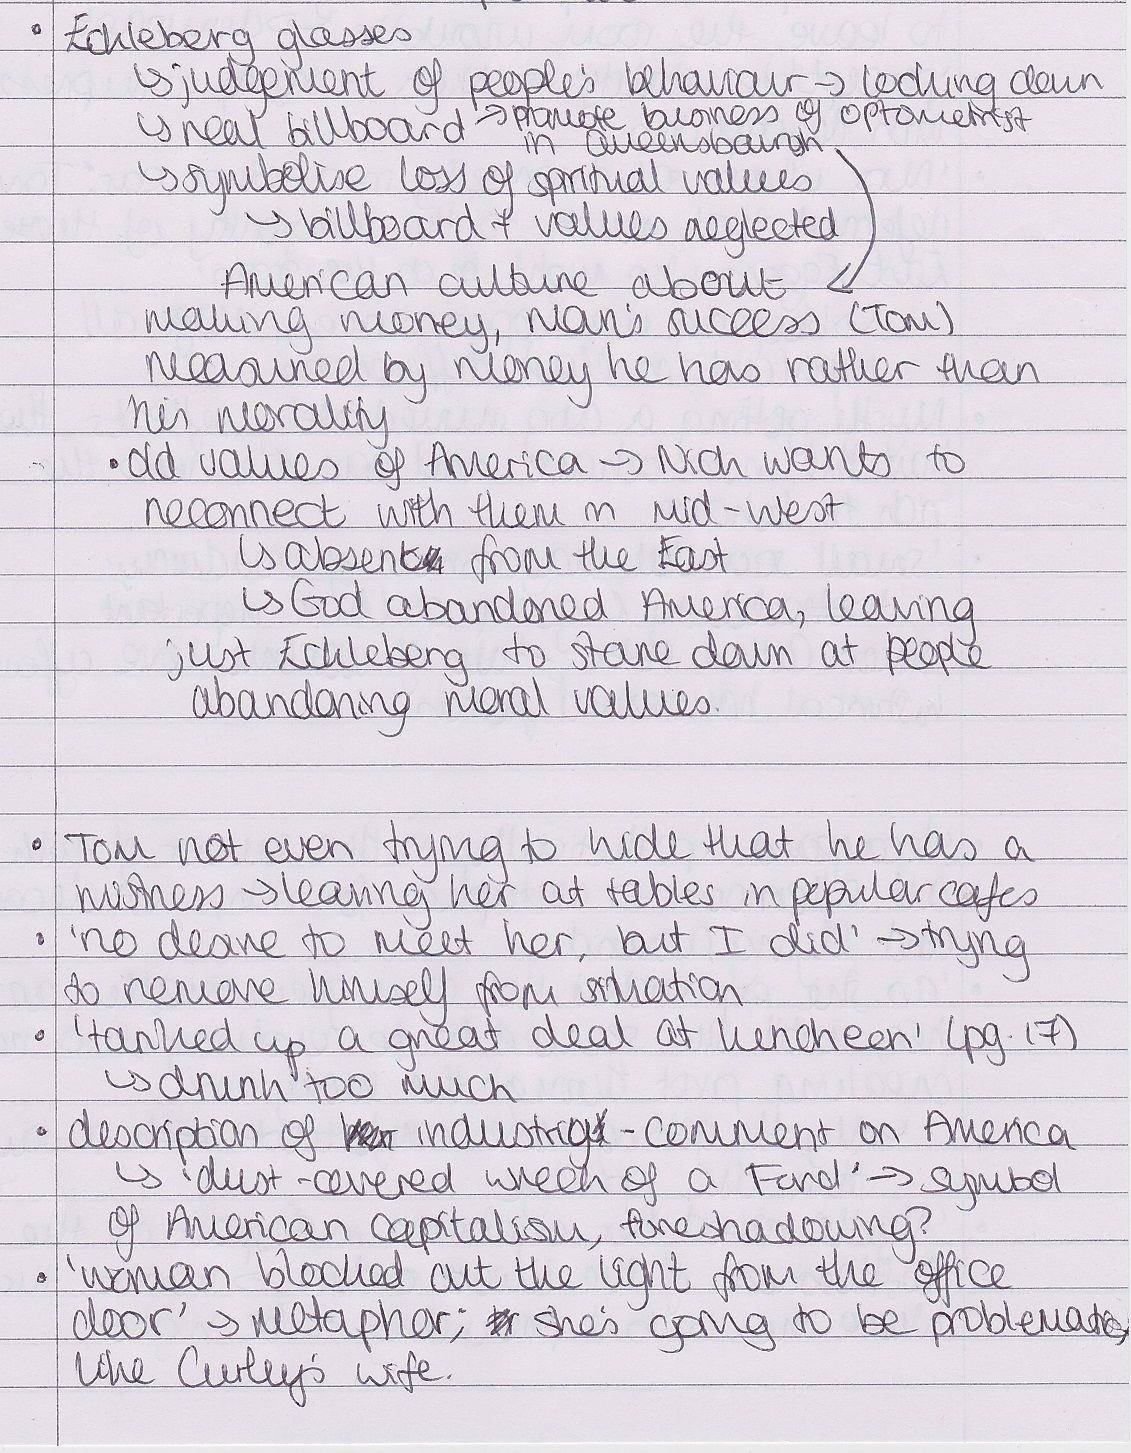 • Eckleberg glasses
↳ judgement of people's behaviour → looking down
↳ real billboard → promote business of optometrist
in Queensbourgh
↳ symbolise loss of spiritual values
↳ billboard + values neglected
American culture about
making money, man's success (Tom)
measured by money he has rather than
his morality
• old values of America → Nick wants to
reconnect with them in mid-west
↳ absent from the East
↳ God abandoned America, leaving
just Eckleberg to stare down at people
abandoning moral values.
• Tom not even trying to hide that he has a
mistress → leaving her at tables in popular cafes
• 'no desire to meet her, but I did' → trying
to remove himself from situation
• 'tanked up a great deal at luncheon' (pg. 17)
↳ drunk too much
• description of industry - comment on America
↳ 'dust-covered wreck of a Ford' → symbol
of American capitalism, foreshadowing?
• 'woman blocked out the light from the office
door' → metaphor; she's going to be problematic,
like Curley's wife.